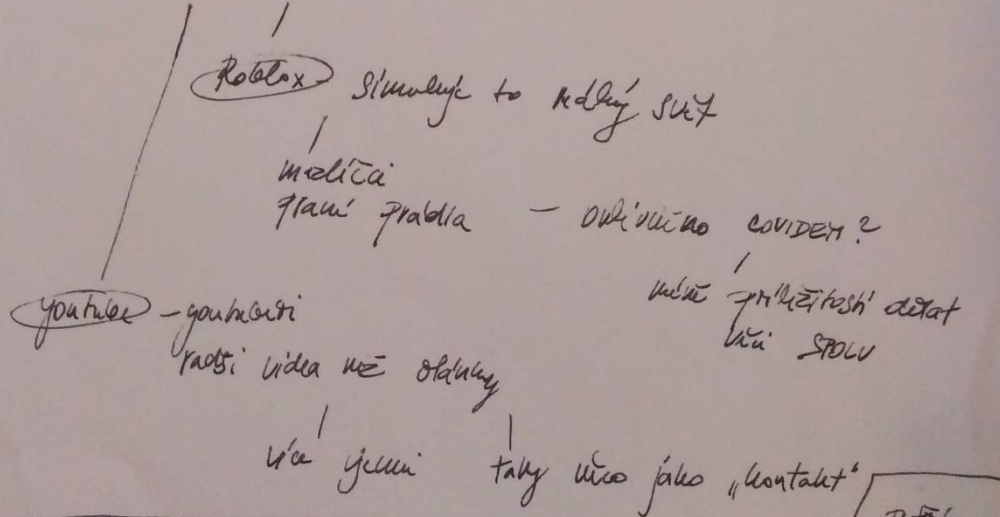 Roblox simuluje to reálný svět
mazlíčci
praní prádla — ovlivněno COVIDEM?
méně příležitostí dělat
věci SPOLU
youtube – youtubeři
radši videa než články
více vjemů taky něco jako „kontakt“